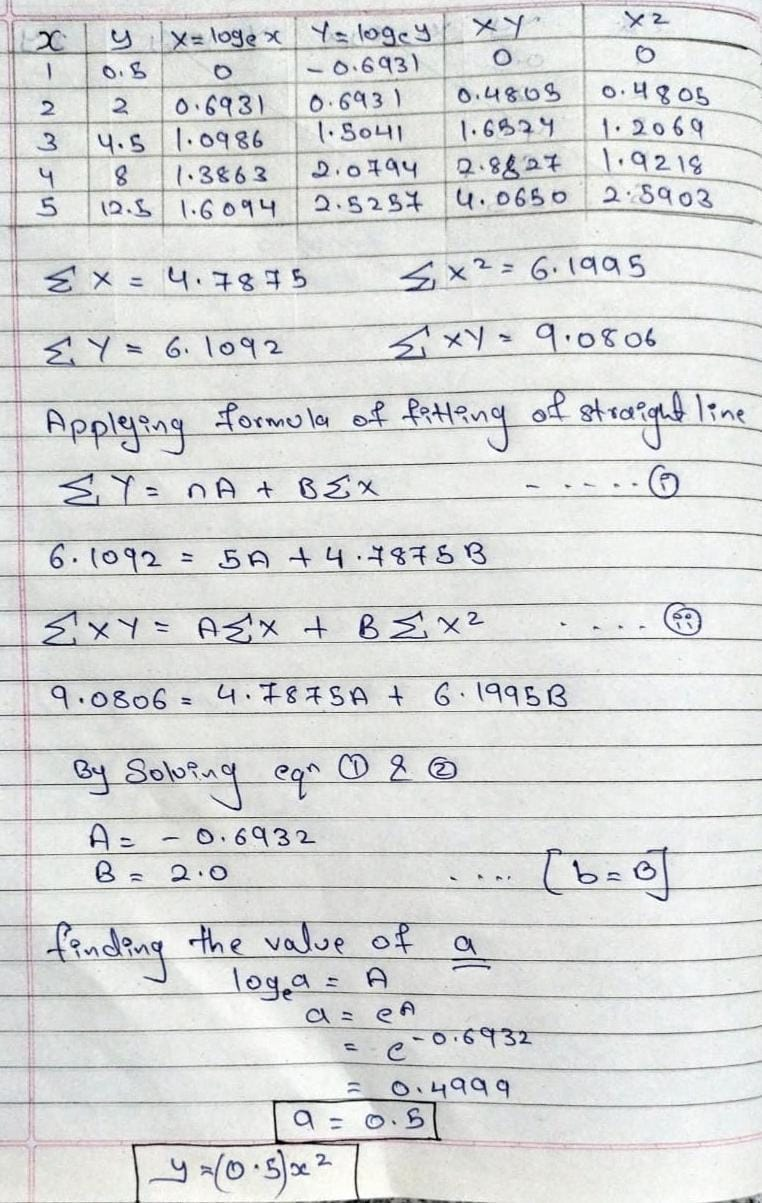 x y X=logex Y=logey XY X2
1 0.5 0 -0.6931 0 0
2 2 0.6931 0.6931 0.4805 0.4805
3 4.5 1.0986 1.5041 1.6524 1.2069
4 8 1.3863 2.0794 2.8827 1.9218
5 12.5 1.6094 2.5257 4.0650 2.5903
ΣX = 4.7875 ΣX² = 6.1995
ΣY = 6.1092 ΣXY = 9.0806
Applying formula of fitting of straight line
ΣY = nA + BΣX - ..... (i)
6.1092 = 5A + 4.7875B
ΣXY = AΣX + BΣX² ..... (ii)
9.0806 = 4.7875A + 6.1995B
By Solving eqn ① & ②
A = - 0.6932
B = 2.0 .... [b = B]
finding the value of a
logea = A
a = eA
= e-0.6932
= 0.4999
a = 0.5
y =(0.5)x2